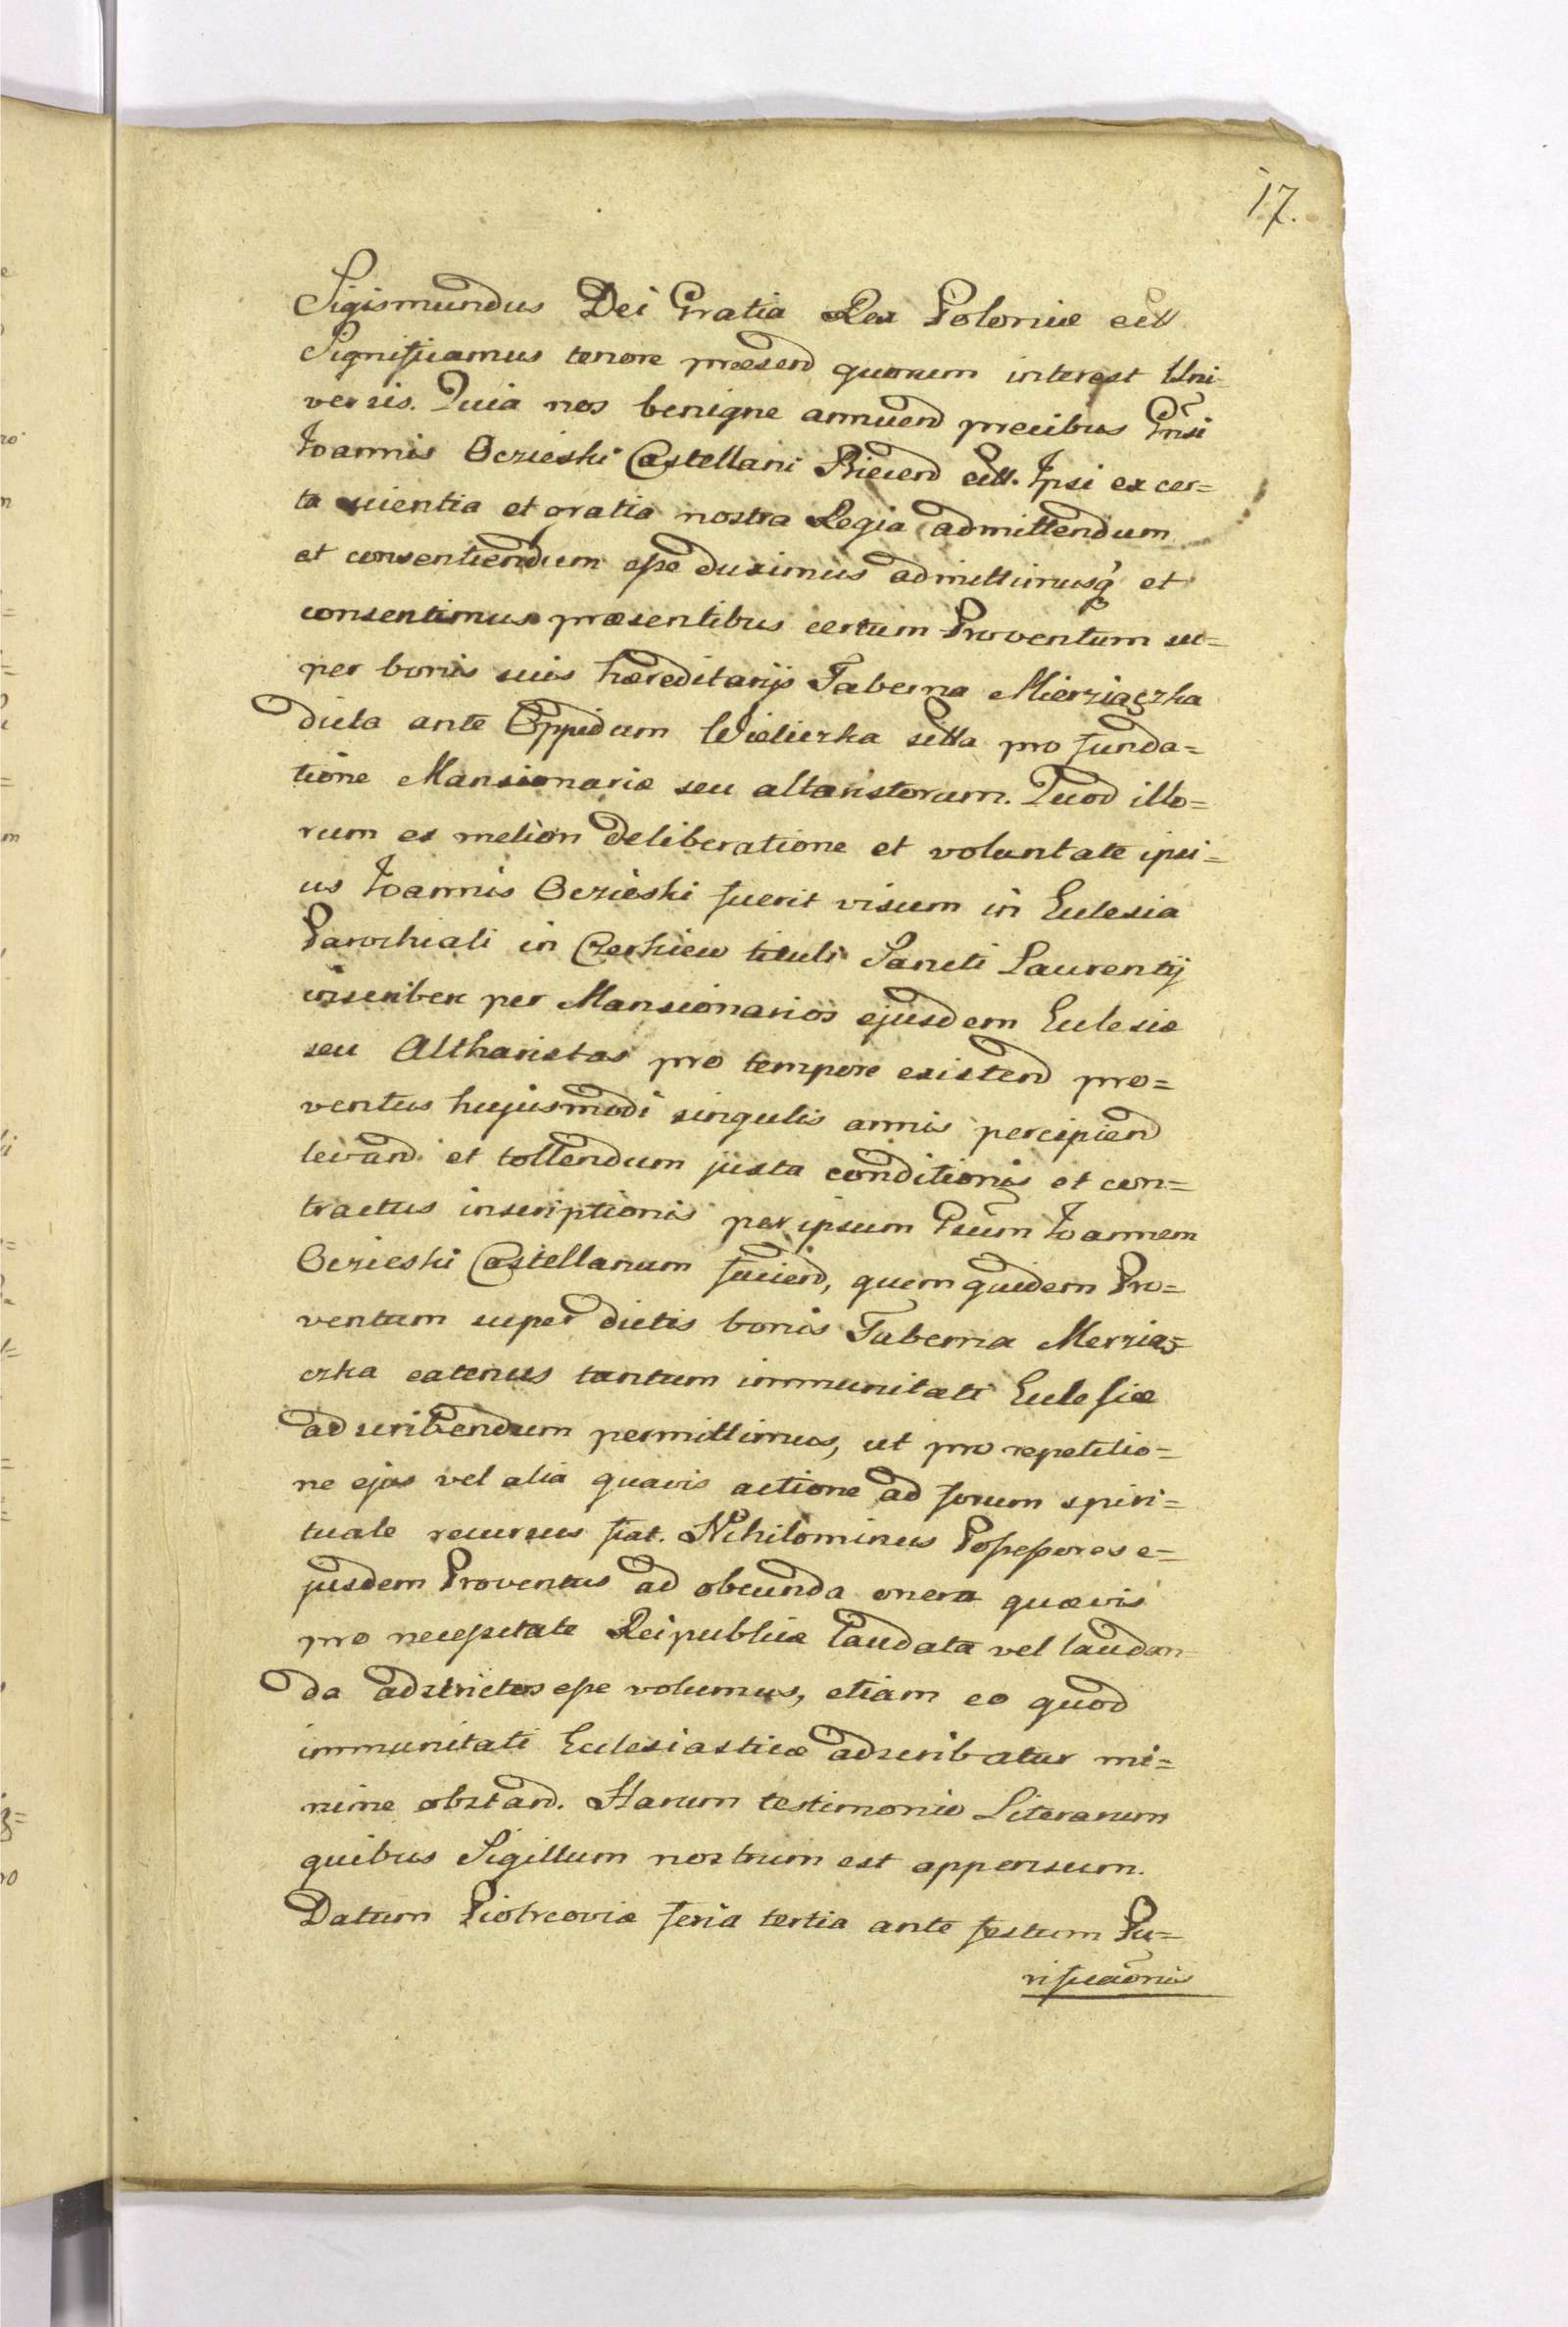 17.
Sigismundus Dei Gratia Rex Poloniæ ett
Significamus tenore præsend quorum interest Uni-
versis. Quia nos benigne annuend precibus Gnsi
Joannis Oczieski Castellani Biecend ett. Ipsi ex cer=
ta scientia et gratia nostra Regia admittendum
et consentiendum esse duximus admittimusq et
consentimus præsentibus certum Proventum su=
per bonis suis hæreditarijs Taberna Mierziączka
dicta ante Oppidum Wieliczka sitta pro funda=
tione Mansionariæ seu altaristorum. Quod illo=
rum ex meliori deliberatione et voluntate ipsi=
us Joannis Oczieski fuerit visum in Eclesia
Parochiali in Czerkiew tituli Sancti Laurentij
inscribere per Mansionarios ejusdem Eclesiæ
seu Altharistas pro tempore existend pro=
ventus hujusmodi singulis annis percipiend
levand. et tollendum juxta conditionis et con=
tractus inscriptionis per ipsum Gsum Joannem
Oczieski Castellanum faciend, quem quidem Pro=
ventum super dictis bonis Taberna Merzią=
czka eatenus tantum immunitati Eclesiæ
adscribendum permittimus, ut pro repetitio=
ne ejus vel alia quavis actione ad forum spiri=
tuale recursus fiat. Nihilominus Possessores e=
jusdem Proventus ad obeunda onera quævis
pro necessitate Reipublicæ laudata vel laudan=
da adstrictos esse volumus, etiam eo quod
immunitati Eclesiasticæ adscribatur mi=
nime obstand. Harum testimonio Literarum
quibus Sigillum nostrum est appensum.
Datum Piotrcoviæ feria tertia ante festum Pu=
rificaonis